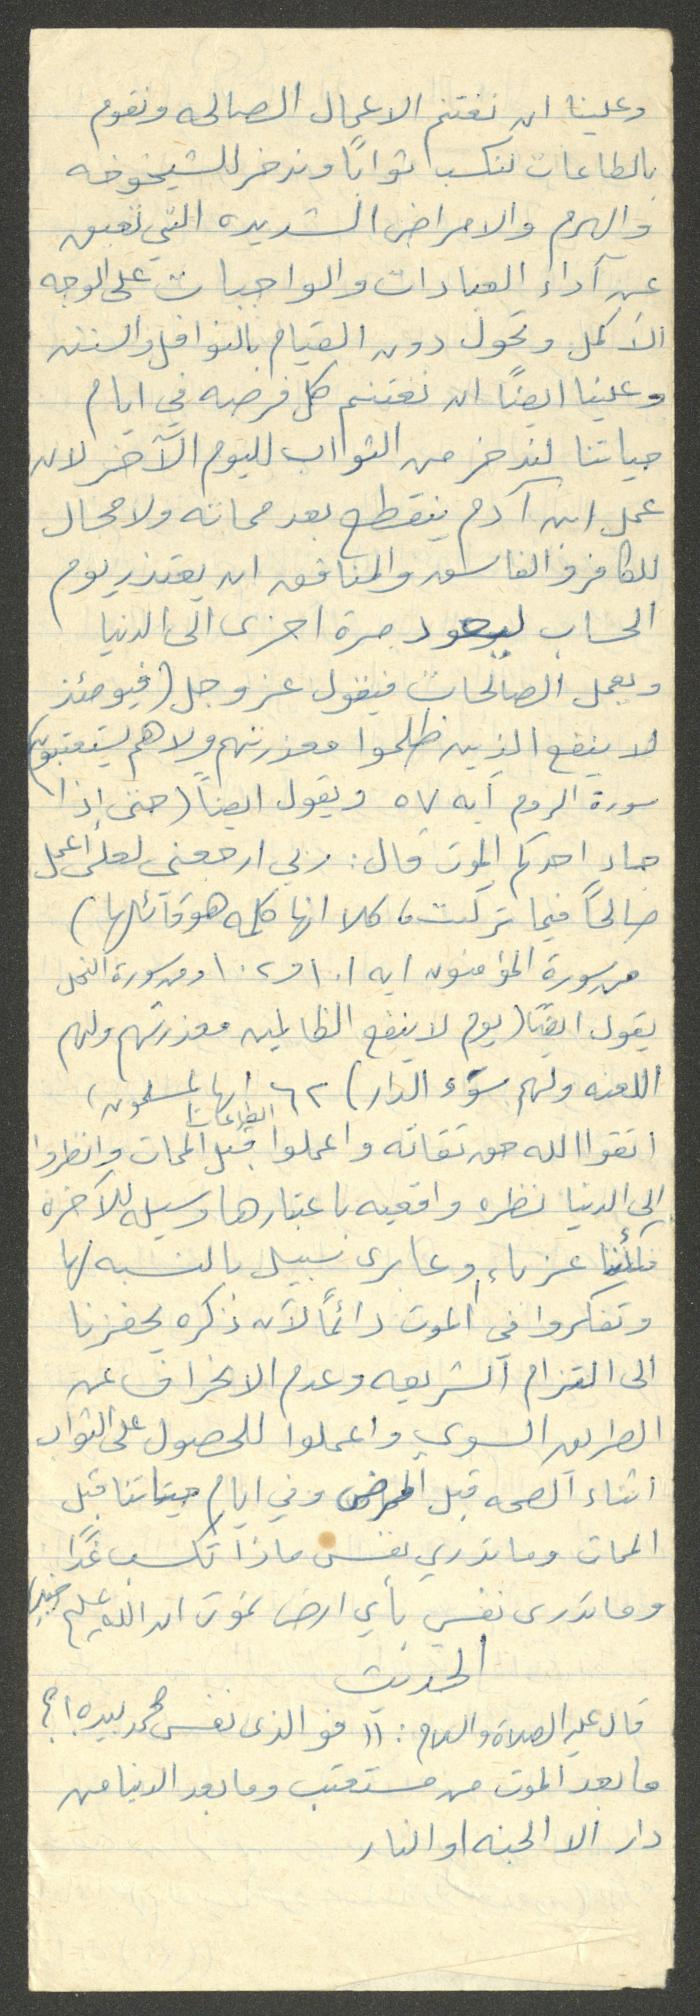 وعلينا ان نغتنم الاعمال الصالحه ونقوم
بالطاعات لنكسب ثوابًا وندخر للشيخوخه
والهرم والامراض الشديده التي تعيق
عن آداء العبادات والواجبات على الوجه
الأكمل وتحول دون القيام بالنوافل والسنن
وعلينا ايضًا ان نغتنم كل فرصه في ايام
حياتنا لندخر من الثواب لليوم الآخر لان
عمل ابن آدم ينقطع بعد مماته ولا مجال
للكافر والفاسق والمنافق ان يعتذر يوم
الحساب ليعود مرة اخرى الى الدنيا
ويعمل الصالحات فيقول عز وجل (فيومئذ
لا ينفع الذين ظلموا معذرتهم ولا هم يستعتبون)
سورة الروم آيه ٥٧ ويقول ايضاً (حتى إذا
جاء احدكم الموت قال: ربي ارجعني لعلي أعمل
صالحاً فيما تركت، كلا انها كلمه هو قآئلها)
من سورة المؤمنون ايه ١٠١ و ١٠٢ ومن سورة النحل
يقول ايضًا (يوم لا ينفع الظالمين معذرتهم ولهم
اللعنه ولهم سوء الدار) ٦٢ ايها المسلمون،
اتقوا الله حق تقاته واعملوا الطاعات قبل الممات وانظروا
إلى الدنيا نظره واقعيه باعتبارها وسيله للآخره
فكأننا غرباء وعابرى سبيل بالنسبه لها
وتفكروا في الموت دائماً لآن ذكره يحفزنا
الى التزام الشريعه وعدم الانحراف عن
الطريق السوي واعملوا للحصول على الثواب
اثناء الصحه قبل المرض وفي ايام حياتنا قبل
الممات وما تدري نفس ماذا تكسب غدًا
وما تدرى نفس بأي ارض تموت ان الله عليم خبير)
الحديث
قال عليه الصلاة والسلام: (( فو الذى نفس محمد بيده !؟
ما بعد الموت من مستعتب وما بعد الدنيا من
دار الا الجنه او النار